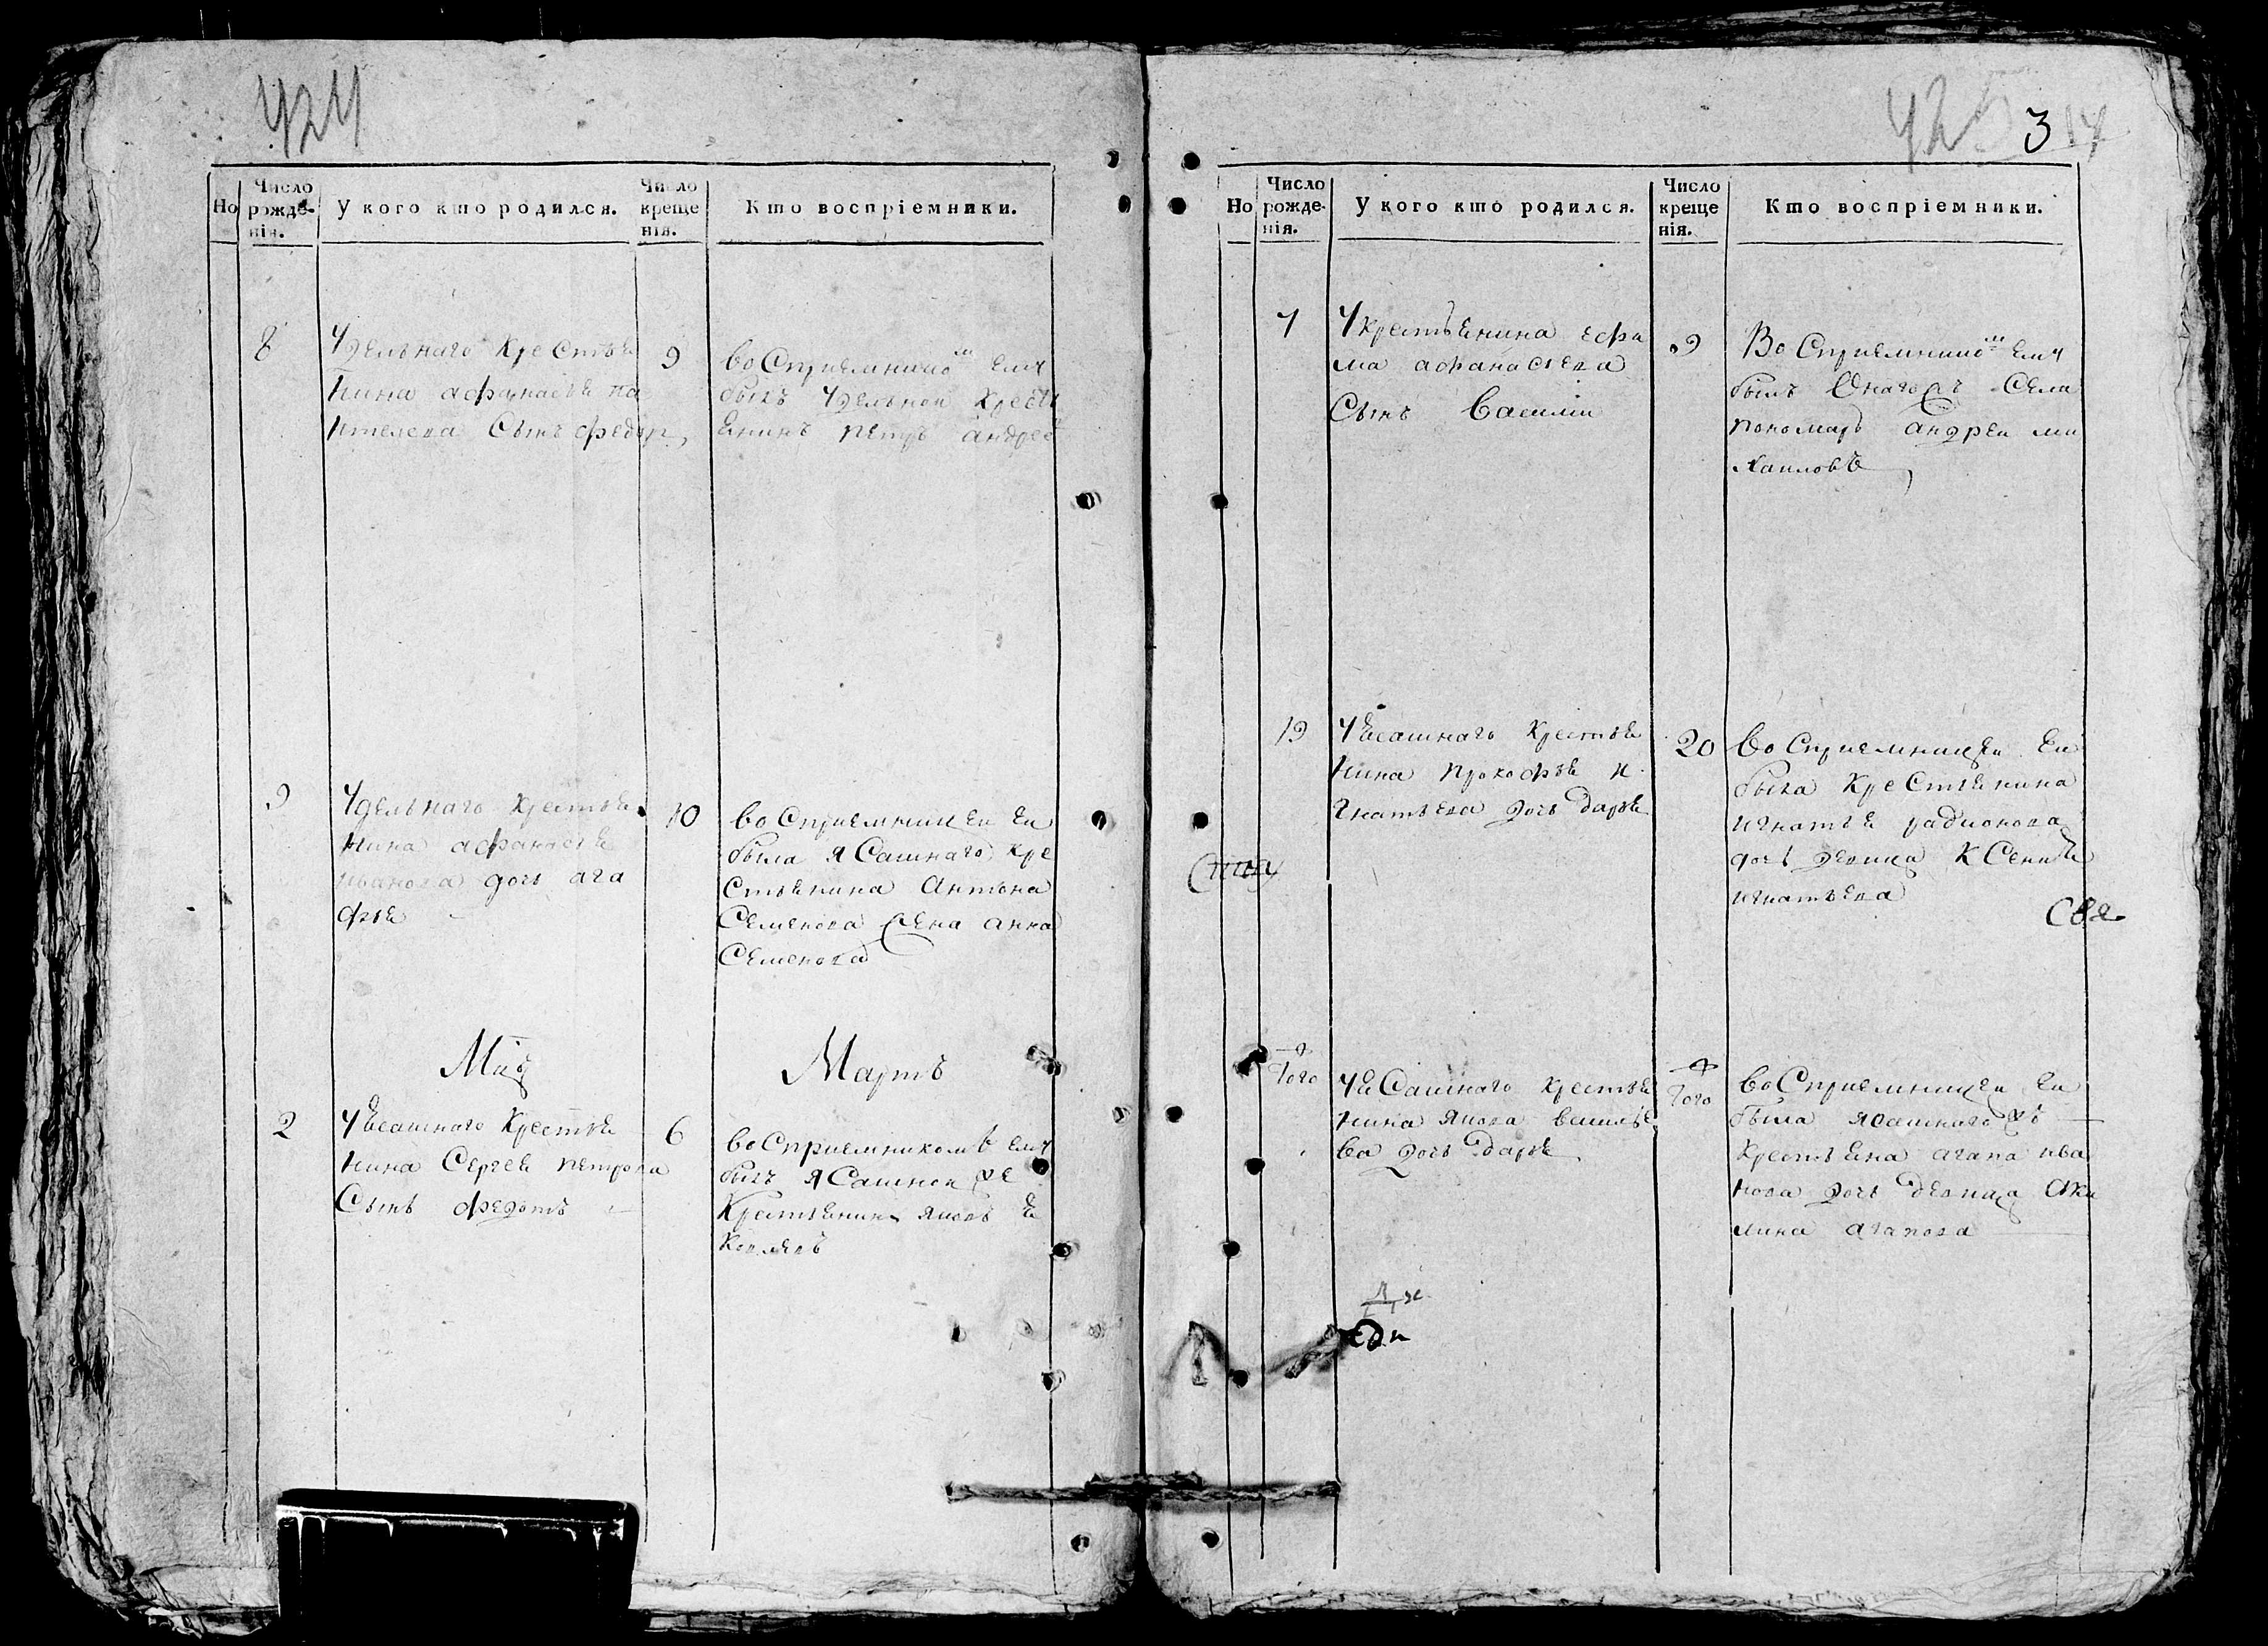 424
Но
Число рожде-нія.
У кого кто родился.
Число креще нія.
Кто воспріемники.
8
Удельнаго крестье
нина афанасье па
нтелева Сынъ федоръ
9
воСприемником ему
былъ Удельнои крестъ
енинъ петръ андрее
9
Удельнаго крестье
нина афанасье
иванова дочь ага
фье
10
воСприемницеи еи
была яСашнаго кре
Стьенина антона
Семенова жена анна
Семенова
Мартъ
2
Уеcашнаго крестье
нина Сергеи петрова
Сынъ федотъ
6
воСприемникомъ ему
былъ яСашнои же
крестьенинъ яковъ
425 3
Но
Число рожде-нія.
У кого кто родился.
Число креще нія.
Кто воспріемники.
7
Укрестьенина ефи
ма афанасьева
Сынъ василии
9
ВоСприемником ему
былъ Онагожъ Села
пономарь андреи ми
хаиловъ
19
Уеcашнаго крестье
нина прокофье и
гнатьева дочь дарье
20
воСприемницеи еи
была креСтьенина
игнатьи радионова
дочь девица КСение
игнатьева
Свя
Того
УеСашнаго крестье
нина якова василье
ва дочь дарье
Того
воСприемницеи еи
была ясашнаго жъ
крестьена агапа ива
нова дочь девица аки
лина агапова